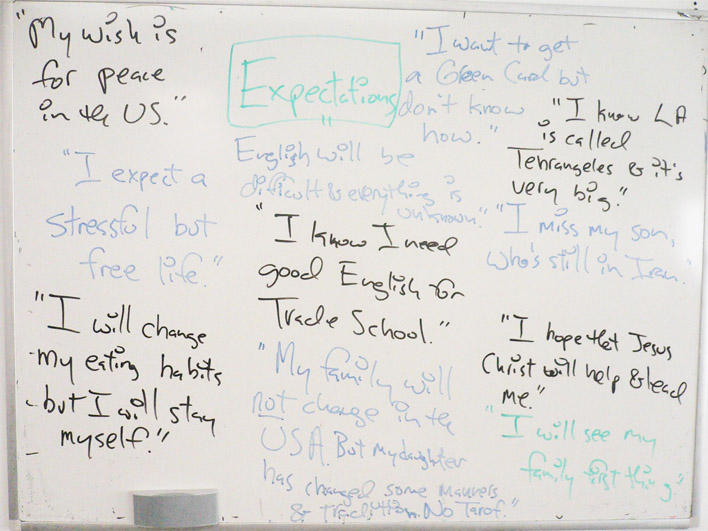 "My wish is
for peace
in the US."
"I expect a
stressful but
free life."
"I will change
my eating habits
but I will stay
myself."
Expectations
"
English will be
difficult & everything is
unknown."
"I know I need
good English for
Trade School."
"My family will
not change in the
USA. But my daughter
has changed some manners
& tradition. No Tarof."
"I want to get
a Green Card but
don't know
how."
"I know LA
is called
Tehrangeles & it's
very big."
"I miss my son,
who's still in Iran."
"I hope that Jesus
Christ will help & lead
me."
"I will see my
family first thing."